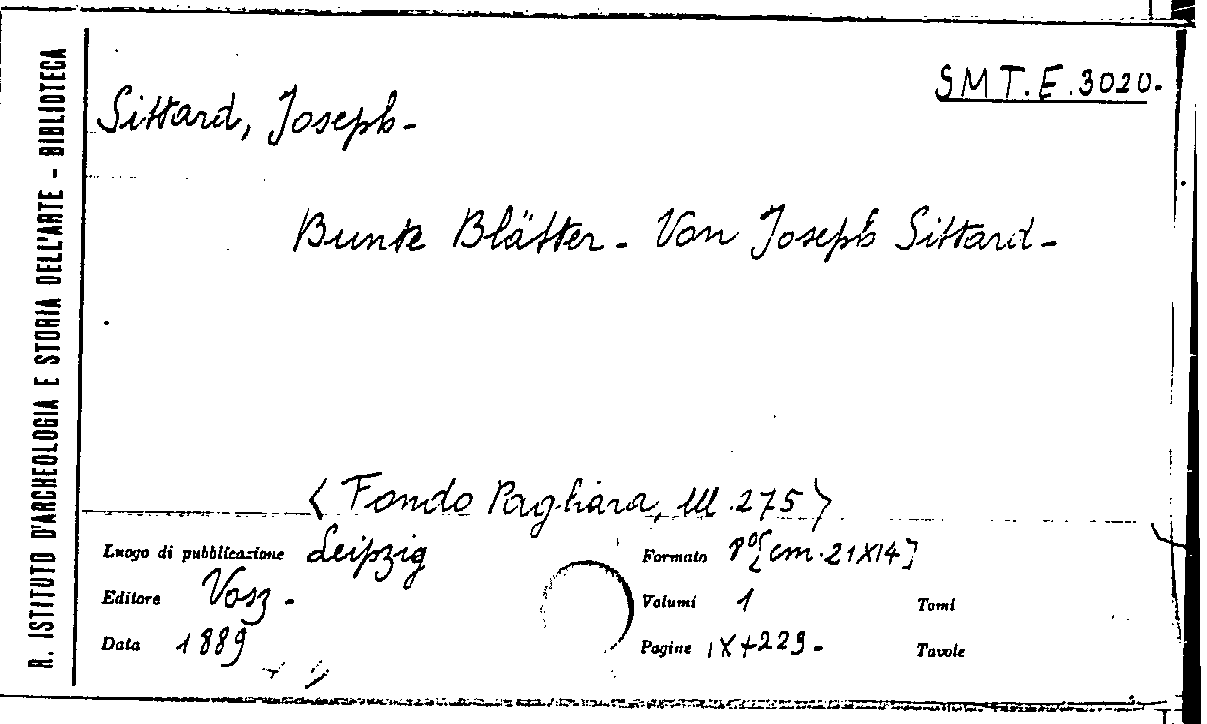 R. ISTITUTO D'ARCHEOLOGIA E STORIA DELL'ARTE - BIBLIOTECA
SMT.E.3020.
Sittard, Joseph-
Bunte Blätter - Von Joseph Sittard -
<Fondo Pagliara, III.275>
Luogo di pubblicazione Leipzig
Formato 8º[cm.21X14]
Editore Vosz.
Volumi 1
Tomi
Data 1889
Pagine IX+229.
Tavole